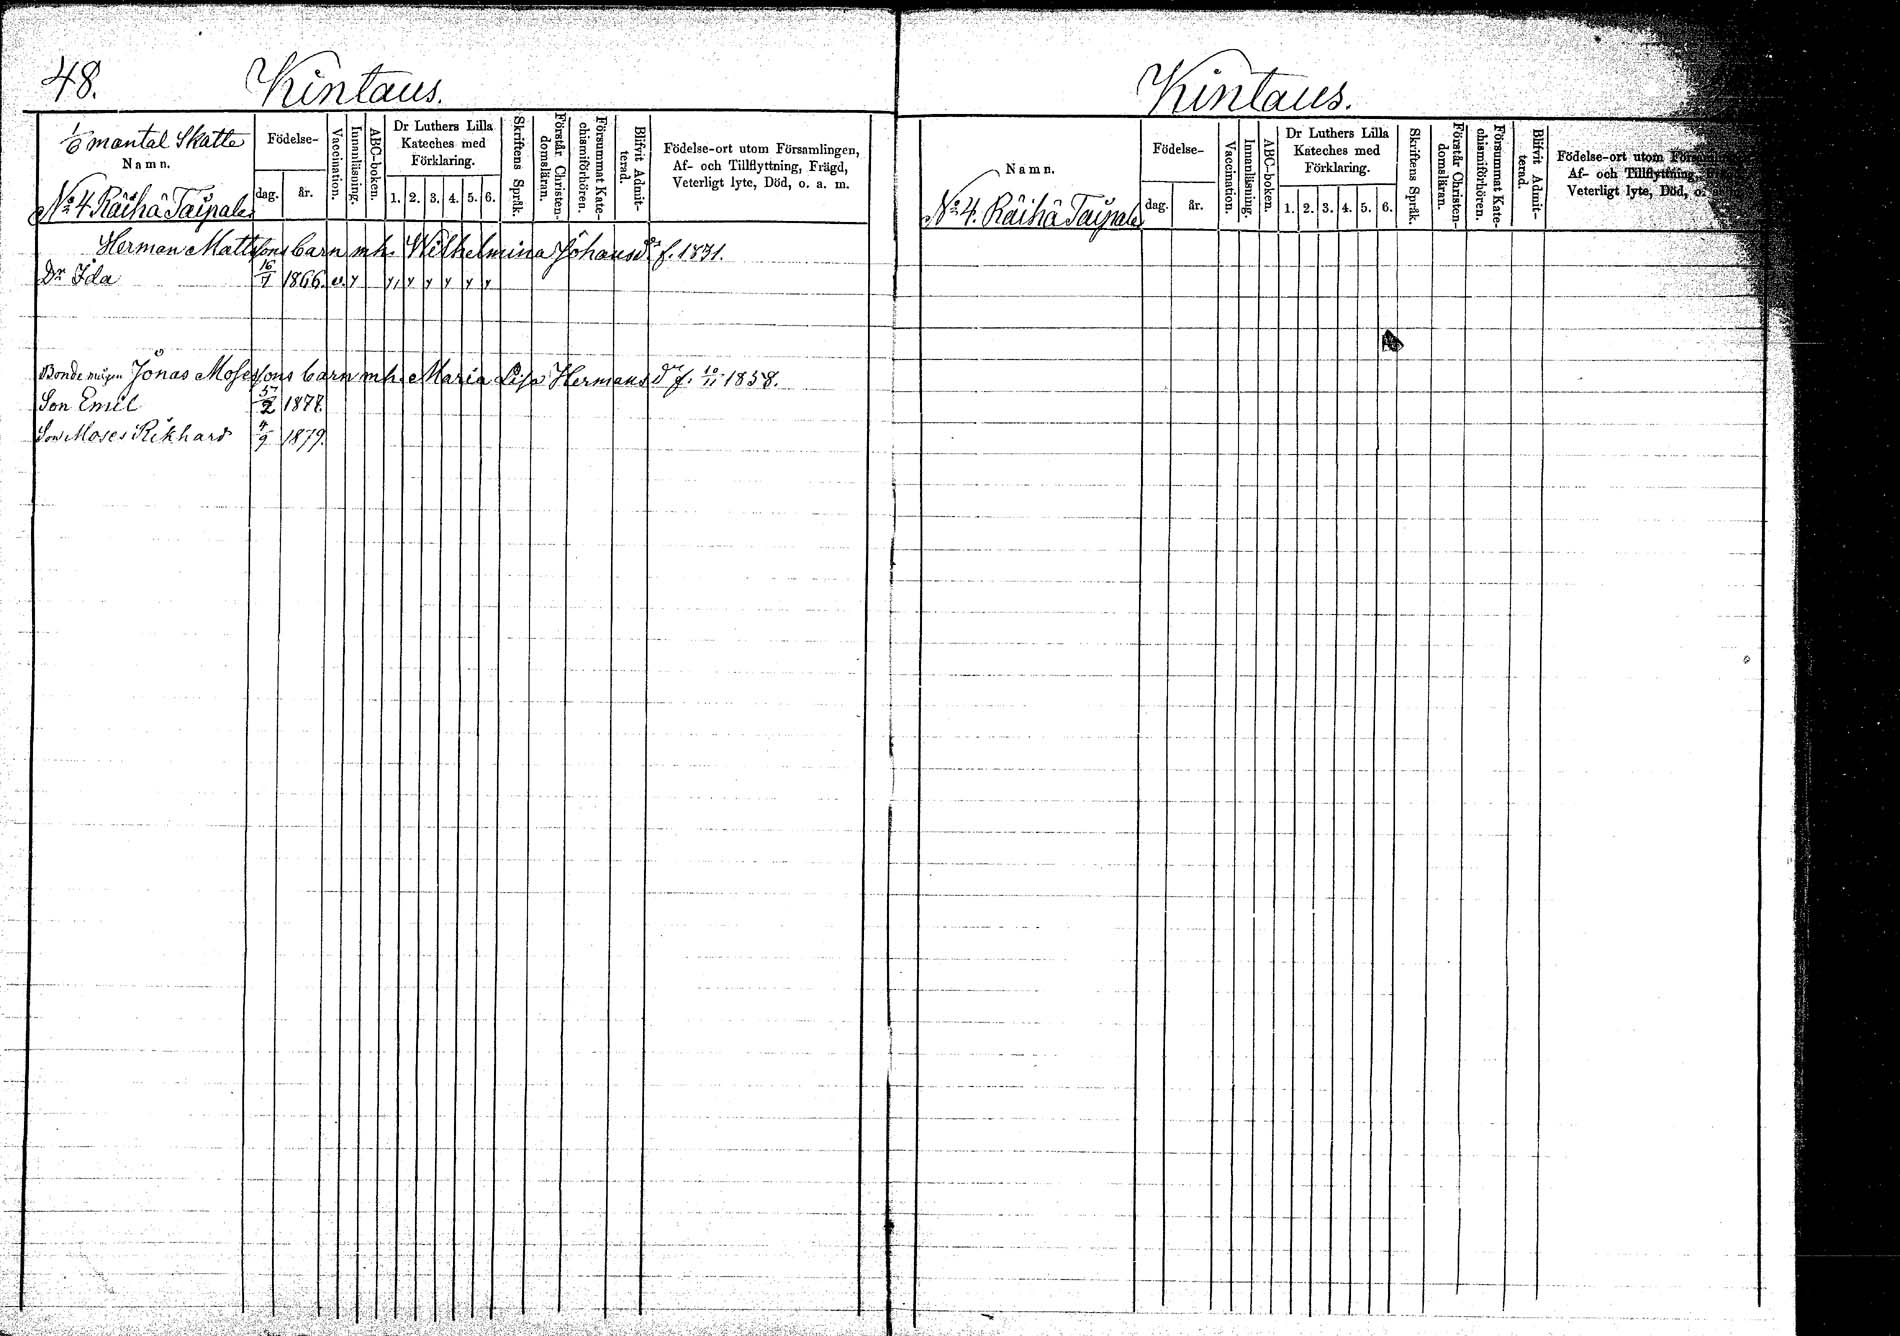 48. Kintaus.
1/6 mantal Skatte
Namn.
No 4 Räihä Taipale.
Födelse-
dag. år.
Vaccination.
Innanläsning.
ABC-boken.
Dr Luthers Lilla
Kateches med
Förklaring.
1. 2. 3. 4. 5. 6.
Skriftens Språk.
Förstår Christen-
domsläran.
Försummat Kate-
chismiförhören.
Blifvit Admit-
terad.
Födelse-ort utom Församlingen,
Af- och Tillflyttning, Frägd,
Veterligt lyte, Död, o. a. m.
Herman Mattssons barn mh. Wilhelmina Johansdr f. 1831.
Dr Ida 16/7 1866. v. y y, y y y y y
Bonde mågen Jonas Mosessons barn mh. Maria Lisa Hermansdr f. 10/11 1858.
Son Emil 5/2 1877.
Son Moses Rikhard 4/9 1879.
Kintaus.
Namn.
No 4. Räihä Taipale
Födelse-
dag. år.
Vaccination.
Innanläsning.
ABC-boken.
Dr Luthers Lilla
Kateches med
Förklaring.
1. 2. 3. 4. 5. 6.
Skriftens Språk.
Förstår Christen-
domsläran.
Försummat Kate-
chismiförhören.
Blifvit Admit-
terad.
Födelse-ort utom
Af- och Tillflyttning,
Veterligt lyte, Död, o.